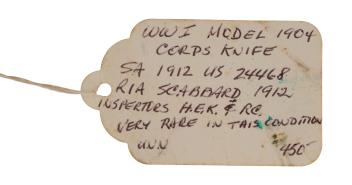 WWI MODEL 1904
CORPS KNIFE
SA 1912 US 24468
RIA SCABBARD 1912
INSPERTORS H.E.K. & R.C.
VERY RARE IN THIS CONDITION
UNN 450-